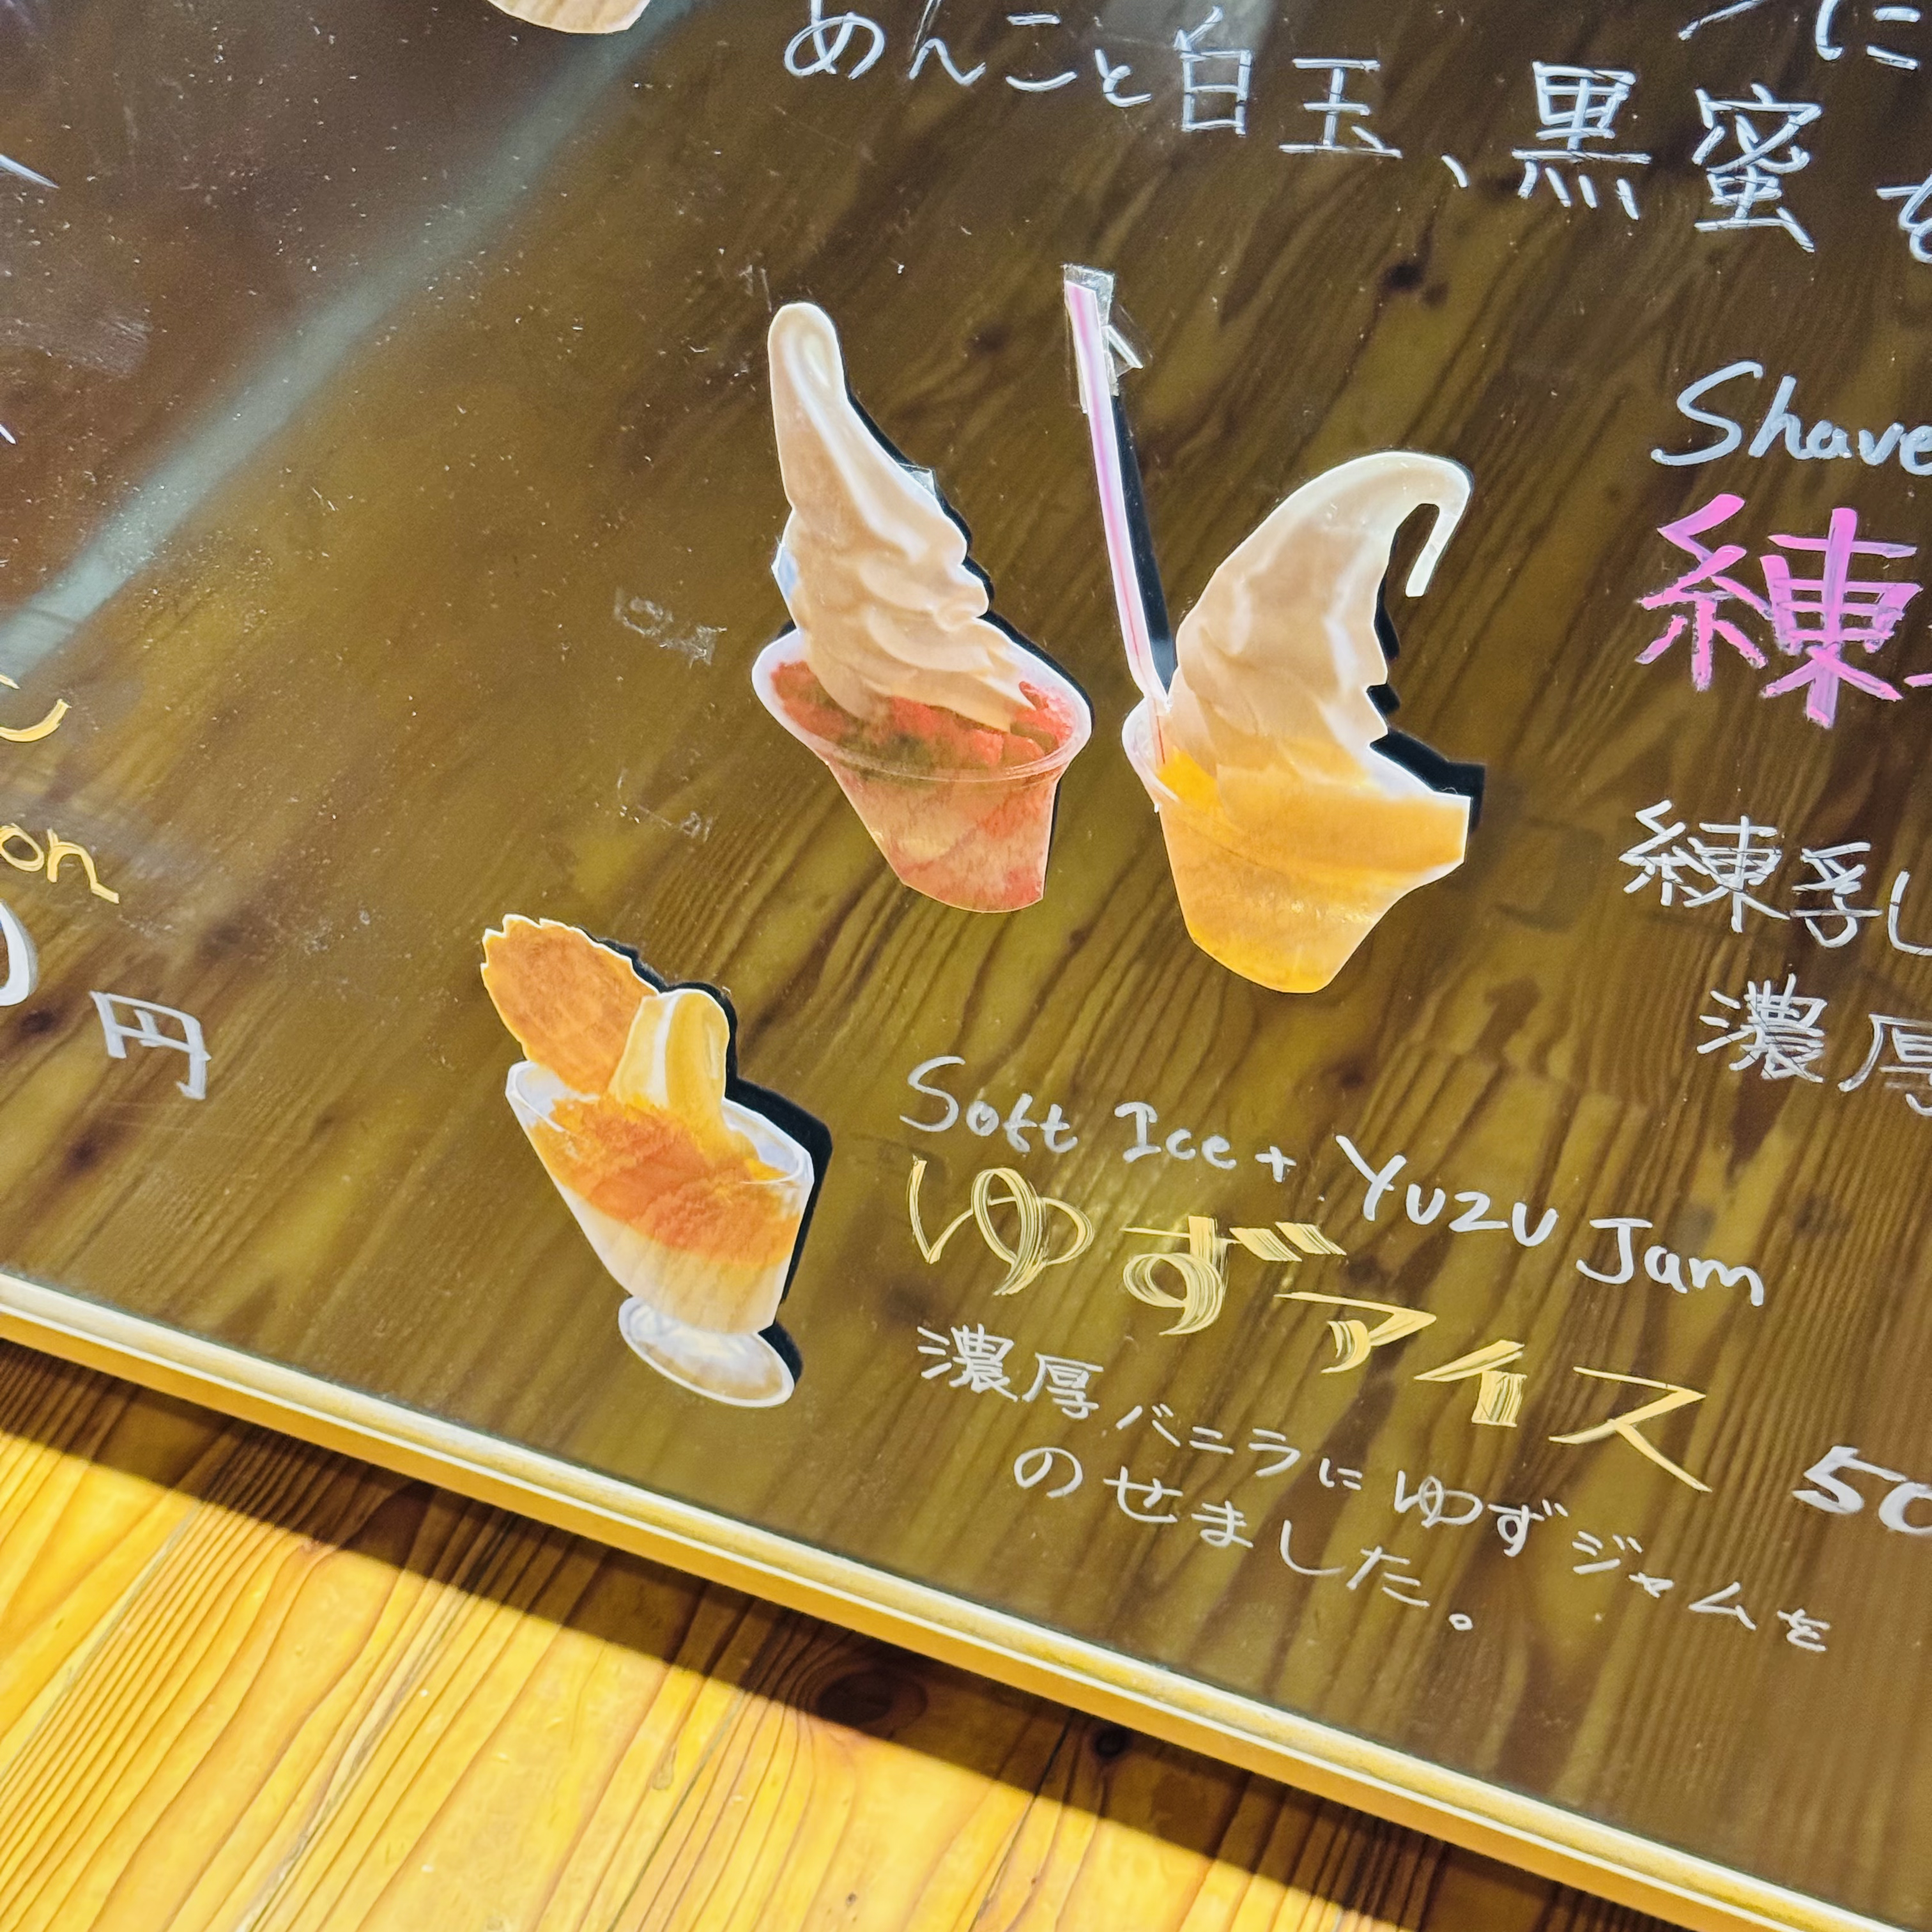 に
めんこと白玉、黒蜜
Shave
練
練乳し
濃厚
on
円
Soft Ice + Yuzu Jam
ゆずアイス
濃厚バニラにゆずジャムを
のせました。